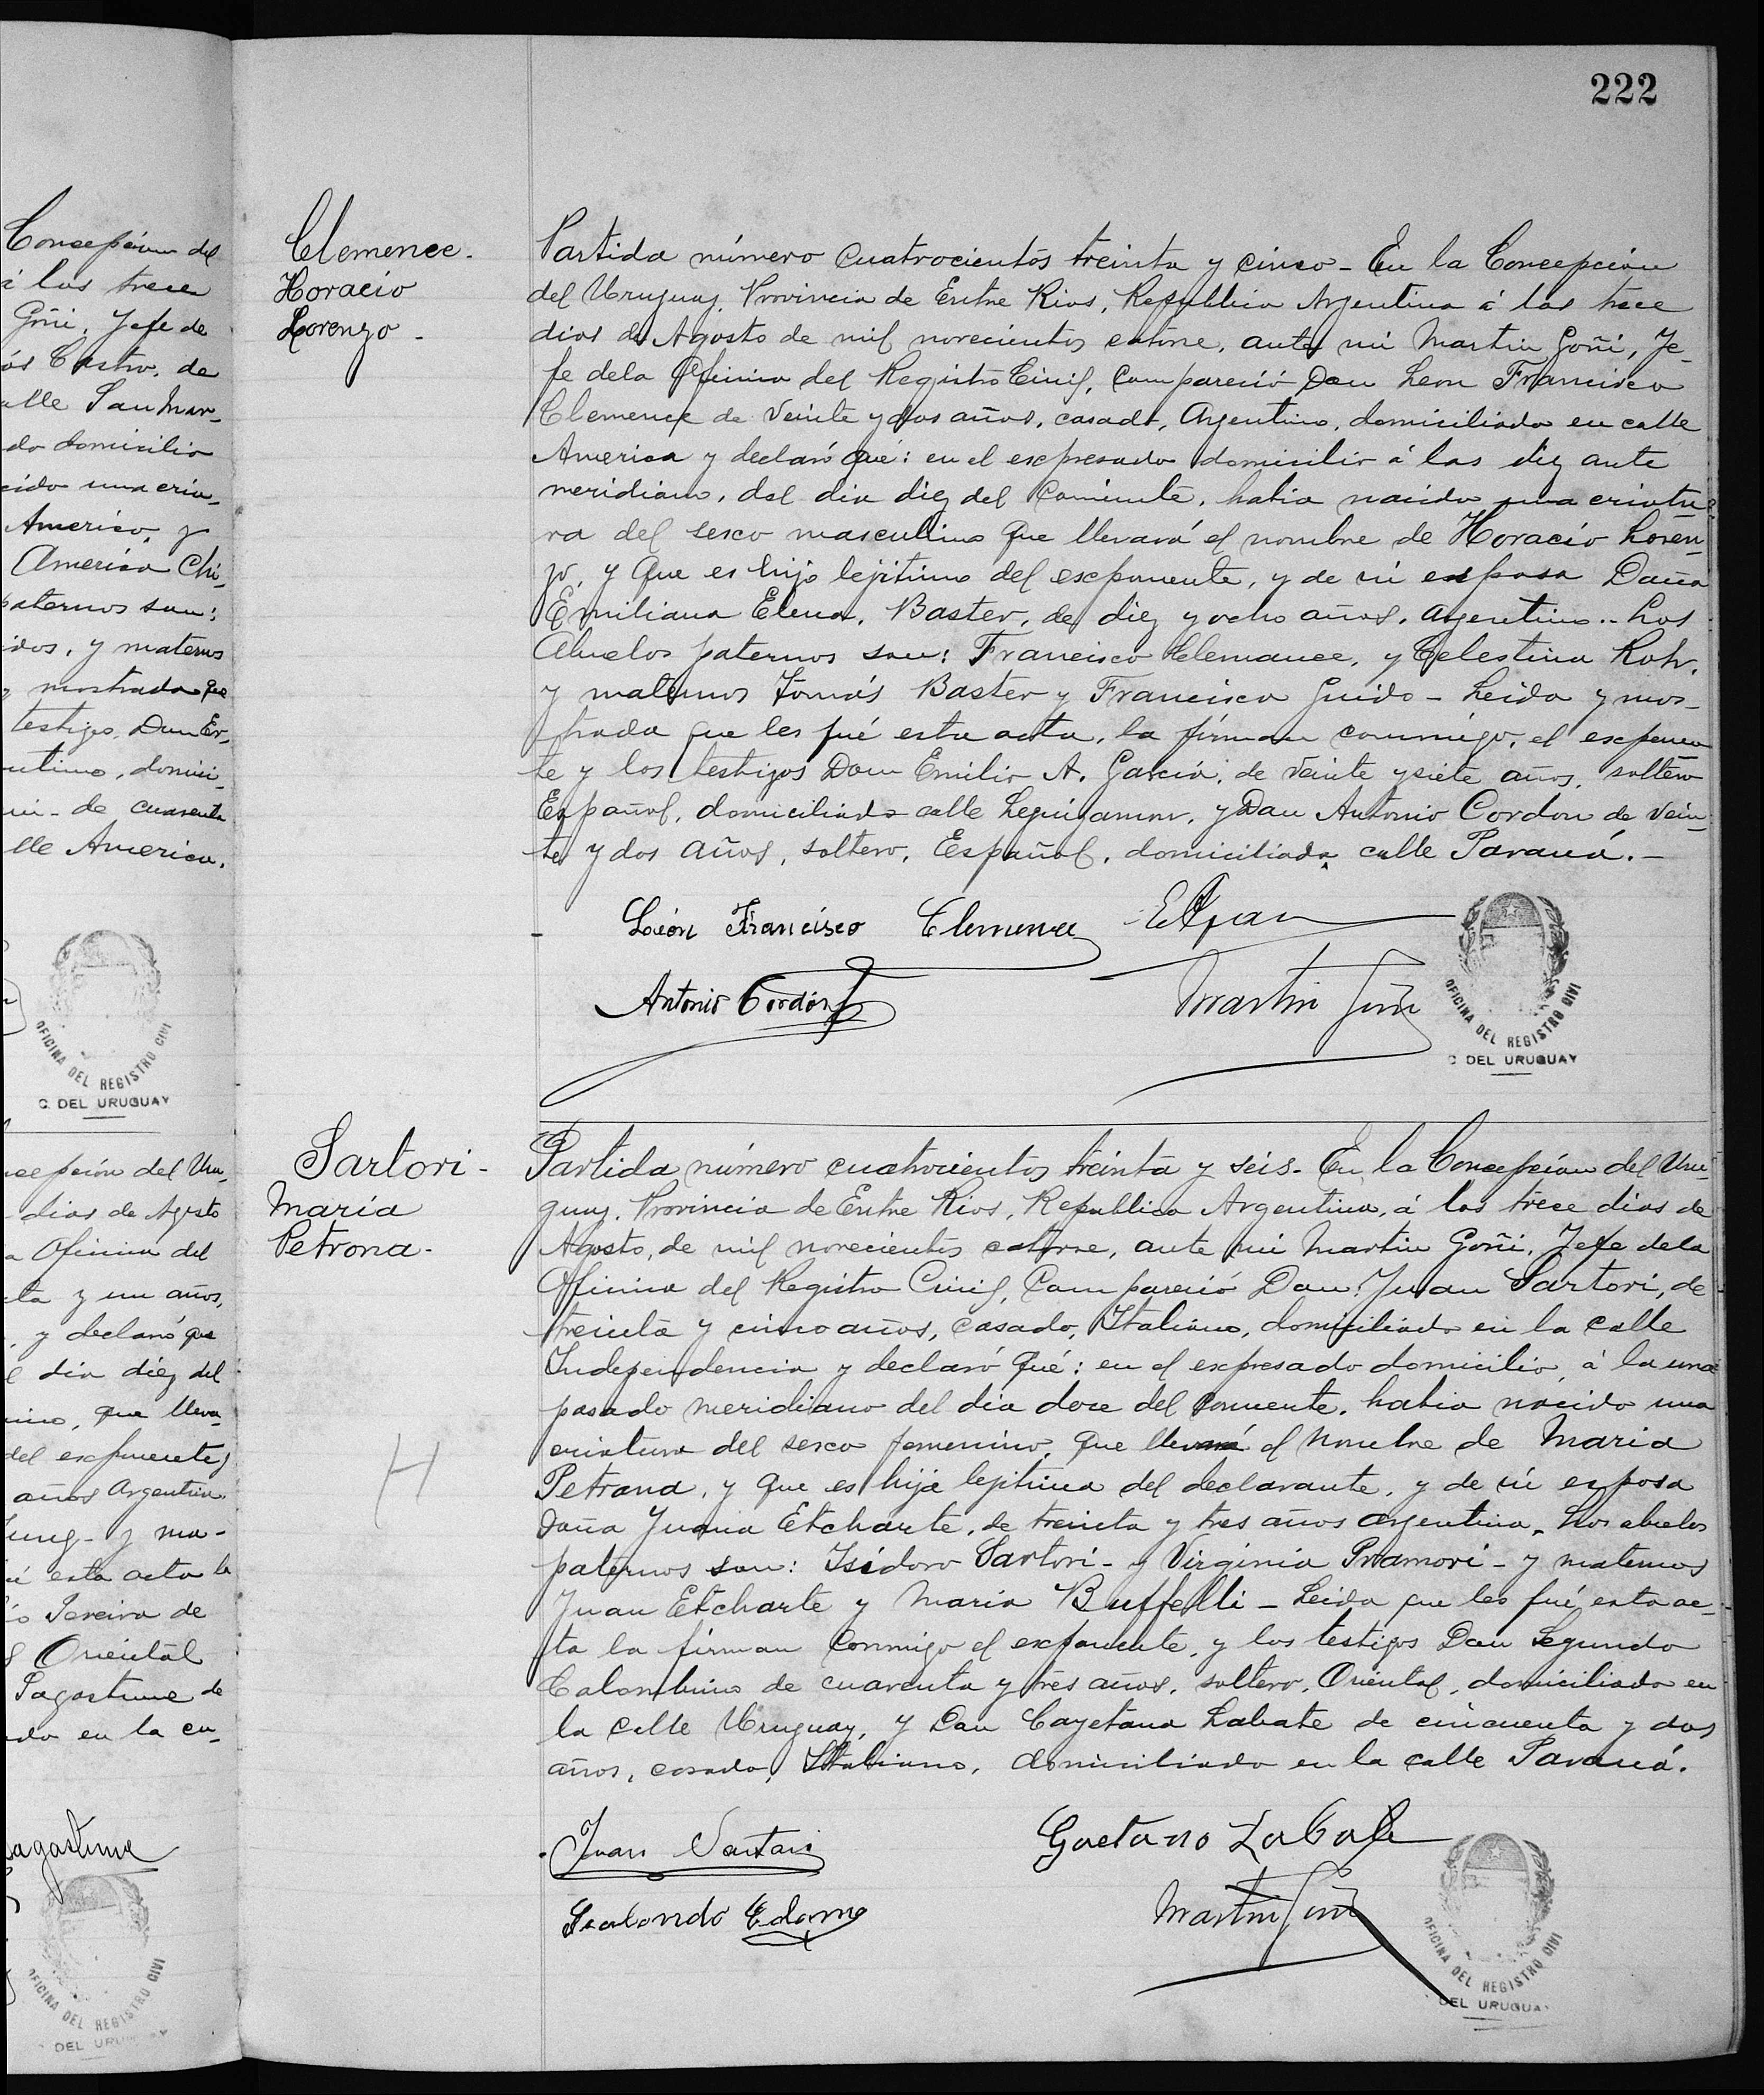 222
Concepción del
á los trece
Goñi, Jefe de
ás Castro, de
alle San Mar-
do domicilio
cido una cria-
Americo, y
America Chi-
paternos son:
idos, y maternos
y mostrada que
testigos Don Er-
entino, domici-
de cuarenta
lle America.
OFICINA DEL REGISTRO CIVI
C. DEL URUGUAY
ncepción del Uru-
dias de Agosto
a Oficina del
ta y un años,
, y declaró que
l dia diez del
nino, que lleva-
del exponente y
años Argentina
y ma-
ué esta acta la
Pereira de
Oriental
Sagastume de
ado en la ca-
Sagastume
OFICINA DEL REGISTRO CIVI
DEL URU
Clemence.
Horacio
Lorenzo.
Partida número cuatrocientos treinta y cinco - En la Concepcion
del Uruguay, Provincia de Entre Rios, Republica Argentina á los trece
dias de Agosto de mil novecientos catorce, ante mi Martin Goñi, Je-
fe dela Oficina del Registro Civil, compareció Don Leon Francisco
Clemence de veinte y dos años, casado, Argentino, domiciliado en calle
America y declaró qué: en el expresado domicilio á las diez ante
meridiano, del dia diez del corriente, habia nacido una criatu-
ra del sexo masculino que llevará el nombre de Horacio Loren-
zo, y que es hijo lejitimo del exponente, y de su esposa Doña
Emiliana Elena Baster, de diez y ocho años, argentina.. Los
Abuelos paternos son: Francisco Clemance, y Celestina Rohr,
y maternos Tomás Baster y Francisca Guido - Leida y mos-
trada que les fué esta acta, la firman conmigo, el exponen-
te y los testigos Don Emilio A. Garcia, de veinte y siete años, soltero
Español, domiciliado calle Leguizamon, y Don Antonio Cordon de vein-
te y dos años, soltero, Español, domiciliado calle Paraná.-
León Francisco Clemence
Antonio Cordón
Martin Goñi
OFICINA DEL REGISTRO CIVI
C DEL URUGUAY
Sartori-
Maria
Petrona-
Partida número cuatrocientos treinta y seis- En la Concepcion del Uru-
guay, Provincia de Entre Rios, Republica Argentina, á los trece dias de
Agosto, de mil novecientos catorce, ante mi Martin Goñi, Jefe dela
Oficina del Registro Civil, Compareció Don Juan Sartori, de
treinta y cinco años, casado, Italiano, domiciliado en la calle
Independencia y declaró qué: en el expresado domicilio, á la una
pasado meridiano del dia doce del corriente, habia nacido una
criatura del sexo femenino, que llevará el nombre de Maria
Petrona, y que es hija lejitima del declarante, y de su esposa
Doña Juana Etcharte, de treinta y tres años argentina. Los abuelos
paternos son: Isidoro Sartori - y Virginia Pramori - y maternos
Juan Etcharte y Maria Buffelli - Leida que les fué esta ac-
ta la firman conmigo el exponente, y los testigos Don Segundo
Colombino de cuarenta y tres años, soltero, Oriental, domiciliado en
la calle Uruguay, y Don Cayetano Labate de cincuenta y dos
años, casado, Italiano, domiciliado en la calle Paraná.
H
Juan Sartori
Gaetano Labate
Martin Goñi
OFICINA DEL REGISTRO CIVI
DEL URUGUA